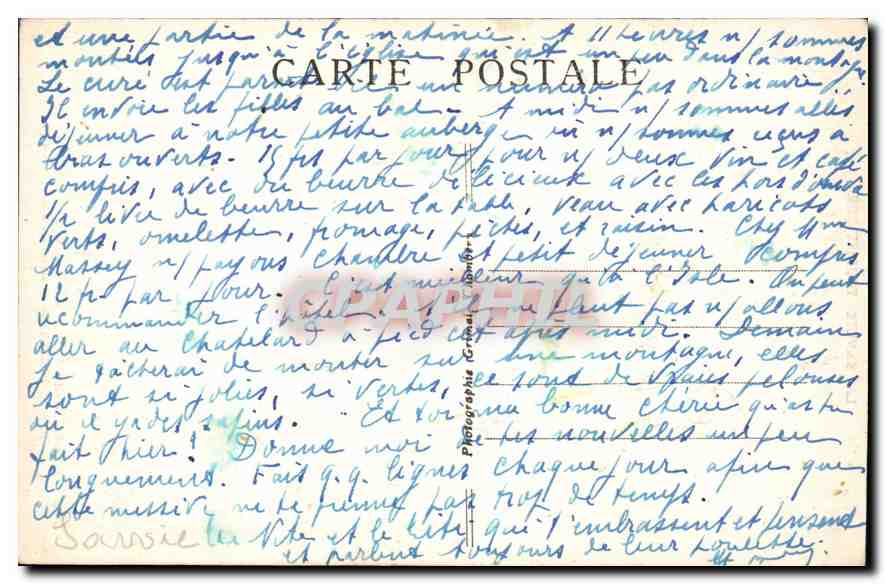 et une partie de la matinée. A 11 heures n/ sommes
montées jusqu'à l'église qui est un peu dans la montagne.
CARTE POSTALE
Le curé est paraît un numéro pas ordinaire
Il envoie les filles au bal - A midi n/ sommes allés
déjeuner à notre petite auberge où n/ sommes reçus à
bras ouverts. 15 frs par jour pour n/ deux vin et café
compris, avec du beurre délicieux avec les hors d'œuvre
1/2 livre de beurre sur la table, veau avec haricots
verts, omelette, fromage, pêches, et raisin. Chez Mme
Massey n/ payons chambre et petit déjeuner compris
12 fr par jour. C'est meilleur qu'à l'Isle. On peut
recommander l'hôtel. pleut pas n/ allons
aller au Chatelard à pied cet après midi. Demain
je tâcherai de monter sur une montagne, elles
sont si jolies, si vertes, ce sont de vraies pelouses
où il y a des sapins. Et toi ma bonne chérie qu'as tu
fait hier? Donne moi de tes nouvelles un peu
longuement. Fais q.q. lignes chaque jour afin que
cette missive ne te prenne pas trop de temps.
Savoie
et le qui t'embrassent et pensent
et parlent toujours de leur poulette.
Photographie Grimal Chambéry
CPAPHIL